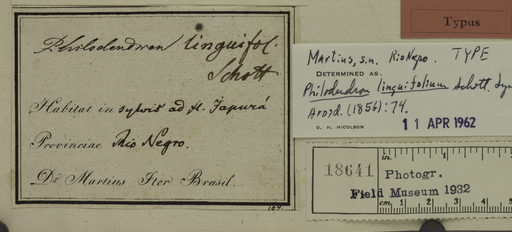 Philodendron linguifol.
Schott
Habitat in sylvis ad fl. Japurá
Provinciae Rio Negro.
Dr. Martius Iter Brasil.
Typus
Martius, s.n. Rio Negro. TYPE
DETERMINED AS:
Philodendron linguifolium Schott. Syn.
Aroid. (1856): 74.
D. H. NICOLSON
11 APR 1962
18641
Photogr.
Field Museum 1932
in. 1
cm. 1 2 3 4